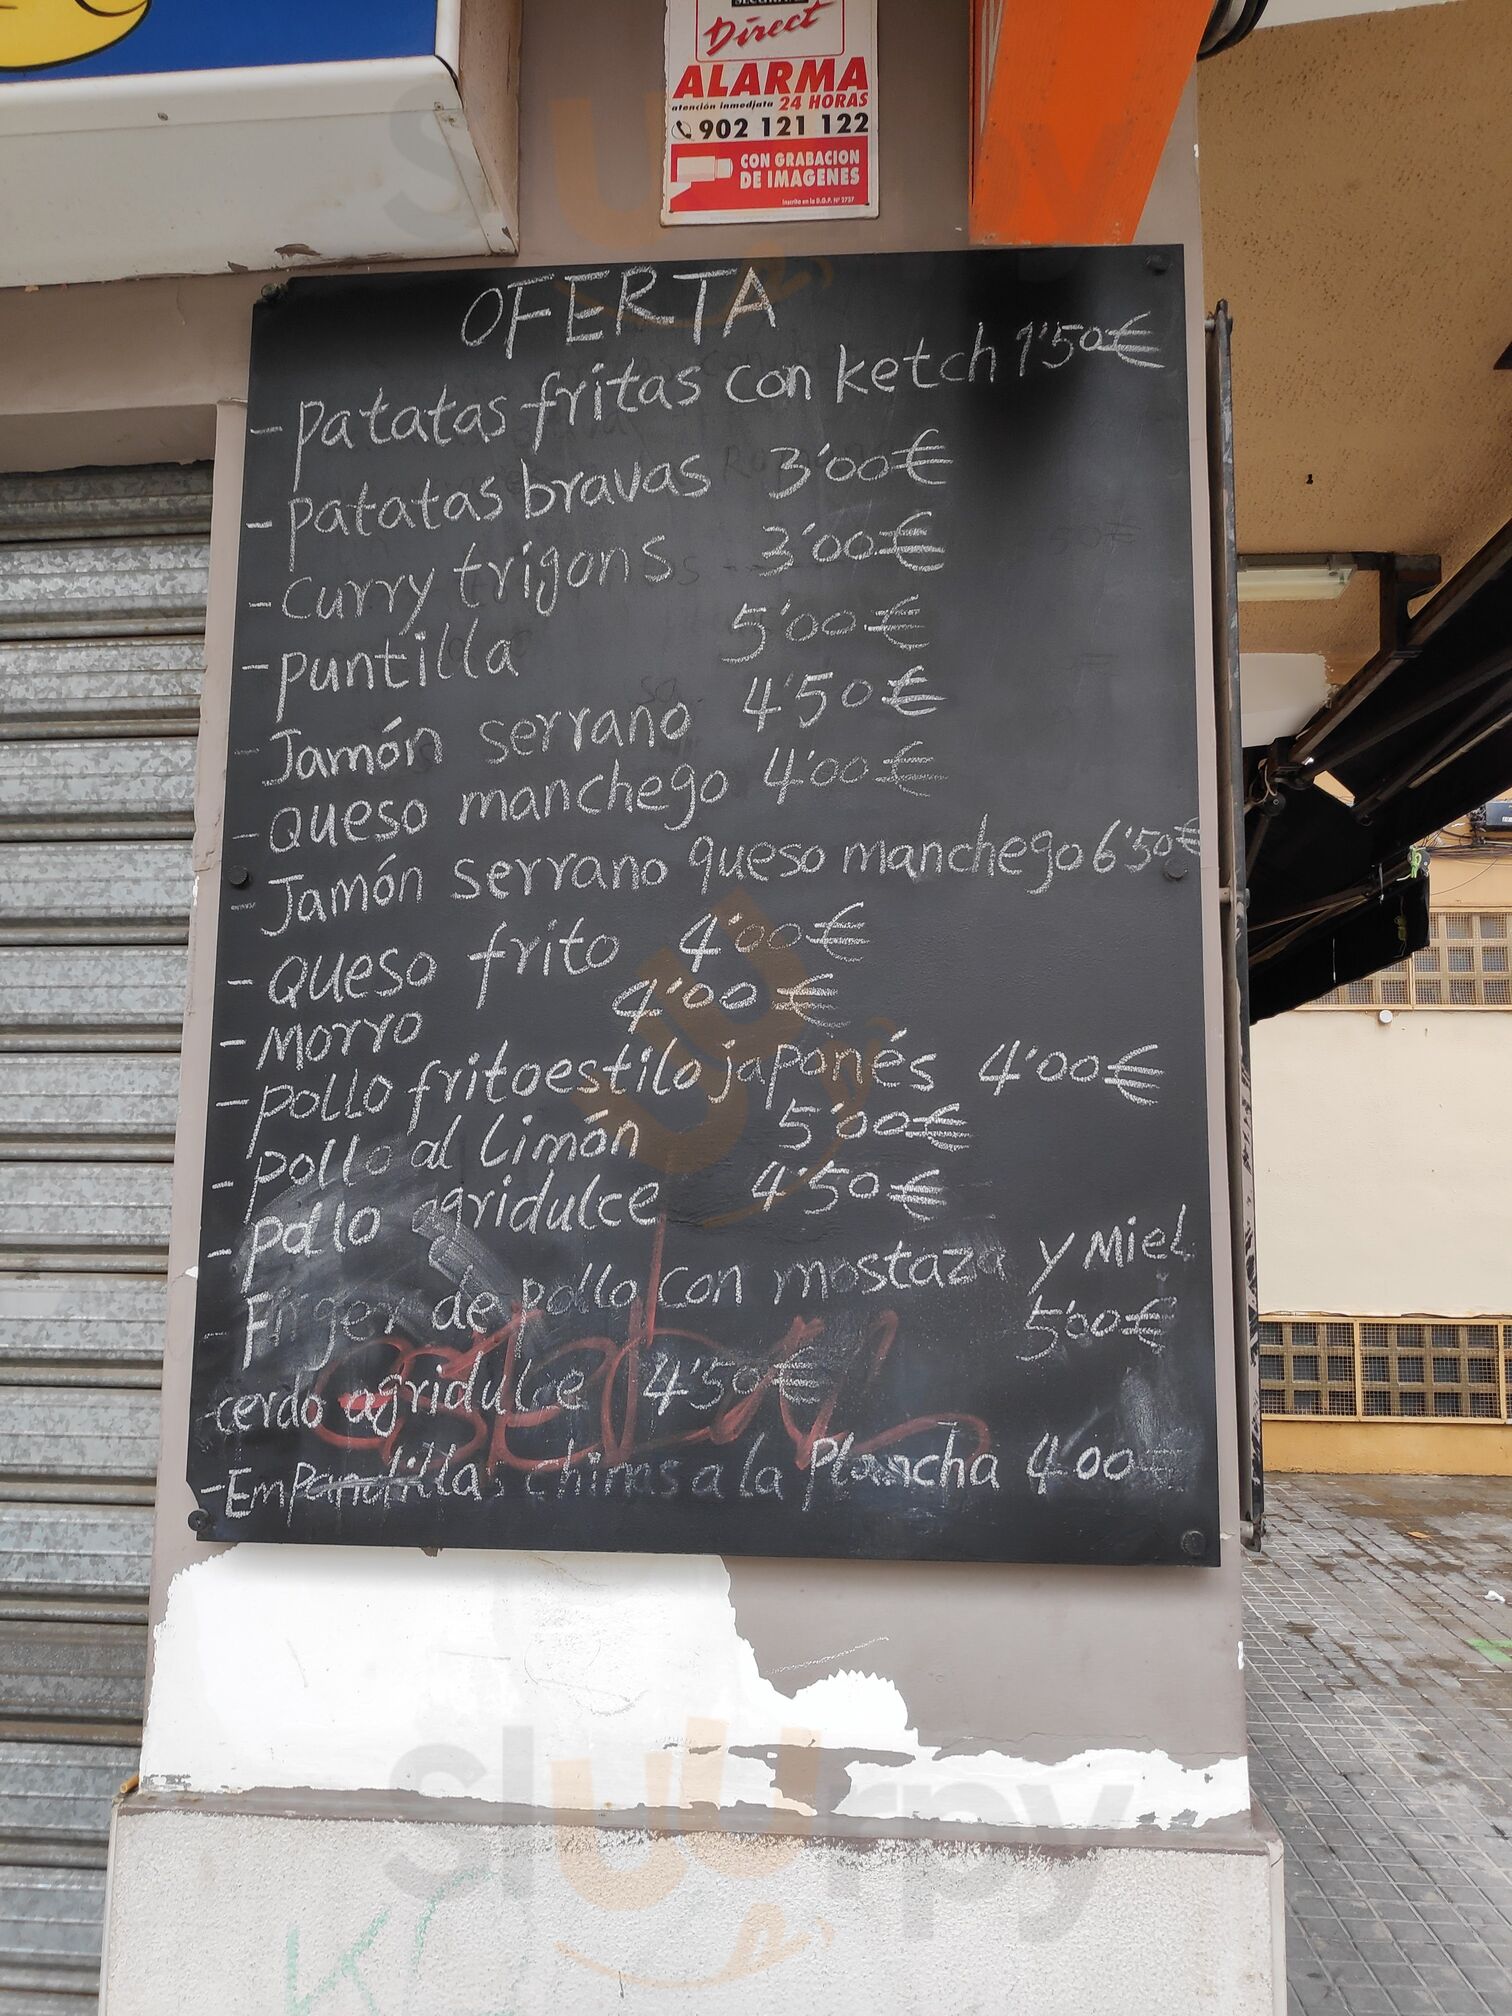 Direct
ALARMA
atención inmediata 24 HORAS
902 121 122
CON GRABACION
DE IMAGENES
Inscrita en la D.G.P. Nº 2737
OFERTA
- patatas fritas con ketch 1'50€
- patatas bravas 3'00€
- curry trigons 3'00€
- puntilla 5'00€
- Jamón serrano 4'50€
- Queso manchego 4'00€
- Jamón serrano queso manchego 6'50€
- Queso frito 4'00€
- Morro 4'00€
- pollo frito estilo japonés 4'00€
- pollo al limón 5'00€
- pollo agridulce 4'50€
- Finger de pollo con mostaza y Miel
5'00€
- cerdo agridulce 4'50€
- Empanadillas chinas a la plancha 4'00€
slurpy
KC